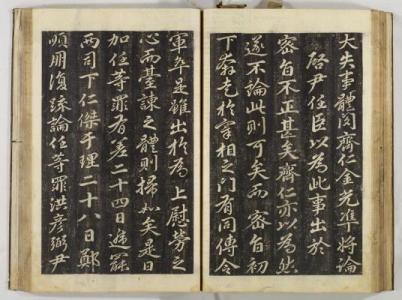 大失事體閔齊仁金光準將論
啓尹任臣以為此事出於
密旨不正甚矣齊仁亦以為然
遂不論此則可矣而 密旨初
下奔走於宰相之門有同傳令
軍卒是雖出於為 上慰勞之
心而臺諫之體則掃如矣是日
加任等罪有差二十四日遞罷
兩司下仁傑于理二十八日鄭
順朋復疏論任等罪洪彦弼尹